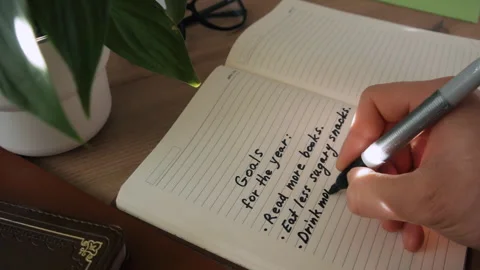 Goals
for the year:
• Read more books.
• Eat less sugary snacks.
• Drink mo